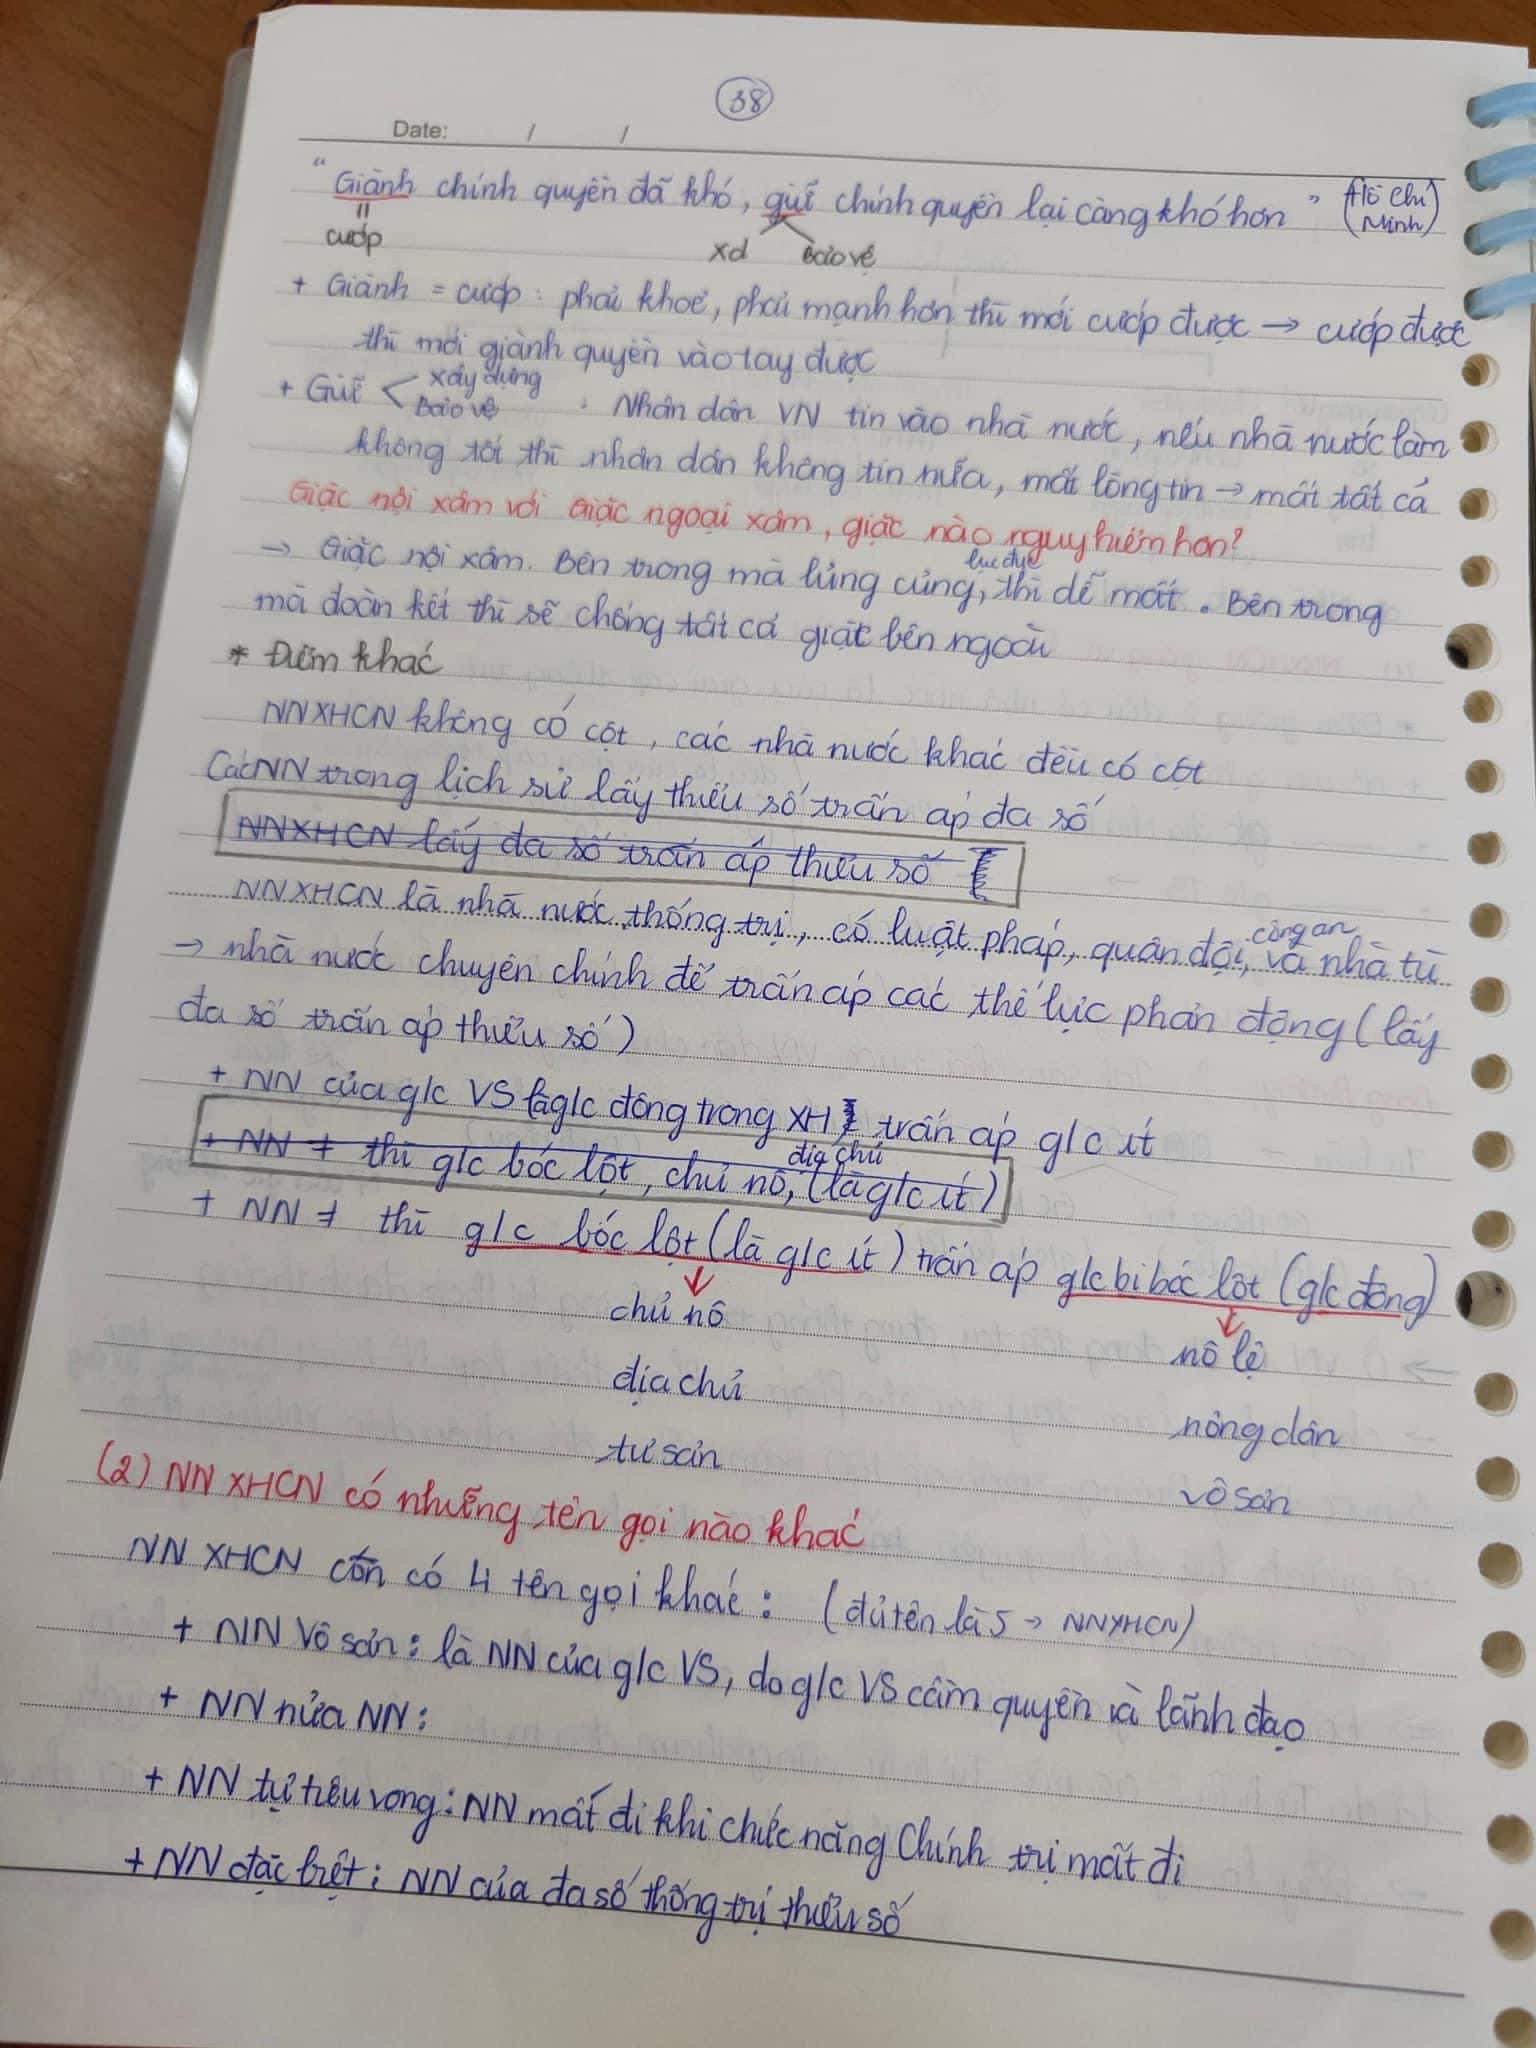 38
Date: / /
"Giành chính quyền đã khó, giữ chính quyền lại càng khó hơn" (Hồ Chí Minh)
= cướp
xd bảo vệ
+ Giành = cướp : phải khoẻ, phải mạnh hơn thì mới cướp được → cướp được
thì mới giành quyền vào tay được
+ Giữ < xây dựng bảo vệ : Nhân dân VN tin vào nhà nước, nếu nhà nước làm
không tốt thì nhân dân không tin nữa, mất lòng tin → mất tất cả
Giặc nội xâm với giặc ngoại xâm, giặc nào nguy hiểm hơn?
→ Giặc nội xâm. Bên trong mà lủng củng, lục đục thì dễ mất. Bên trong
mà đoàn kết thì sẽ chống tất cả giặc bên ngoài
* Điểm khác
NNXHCN không có cột, các nhà nước khác đều có cột
Các NN trong lịch sử lấy thiểu số trấn áp đa số
NNXHCN lấy đa số trấn áp thiểu số
NNXHCN là nhà nước thống trị, có luật pháp, quân đội, công an và nhà tù
→ nhà nước chuyên chính để trấn áp các thế lực phản động (lấy
đa số trấn áp thiểu số)
+ NN của g/c VS là g/c đông trong XH, trấn áp g/c ít
+ NN ≠ thì g/c bóc lột, chủ nô, địa chủ (là g/c ít)
+ NN ≠ thì g/c bóc lột (là g/c ít) trấn áp g/c bị bóc lột (g/c đông)
chủ nô nô lệ
địa chủ nông dân
tư sản vô sản
(2) NN XHCN có những tên gọi nào khác
NN XHCN còn có 4 tên gọi khác : (đủ tên là 5 → NNXHCN)
+ NN Vô sản : là NN của g/c VS, do g/c VS cầm quyền và lãnh đạo
+ NN nửa NN :
+ NN tự tiêu vong : NN mất đi khi chức năng Chính trị mất đi
+ NN đặc biệt : NN của đa số thống trị thiểu số